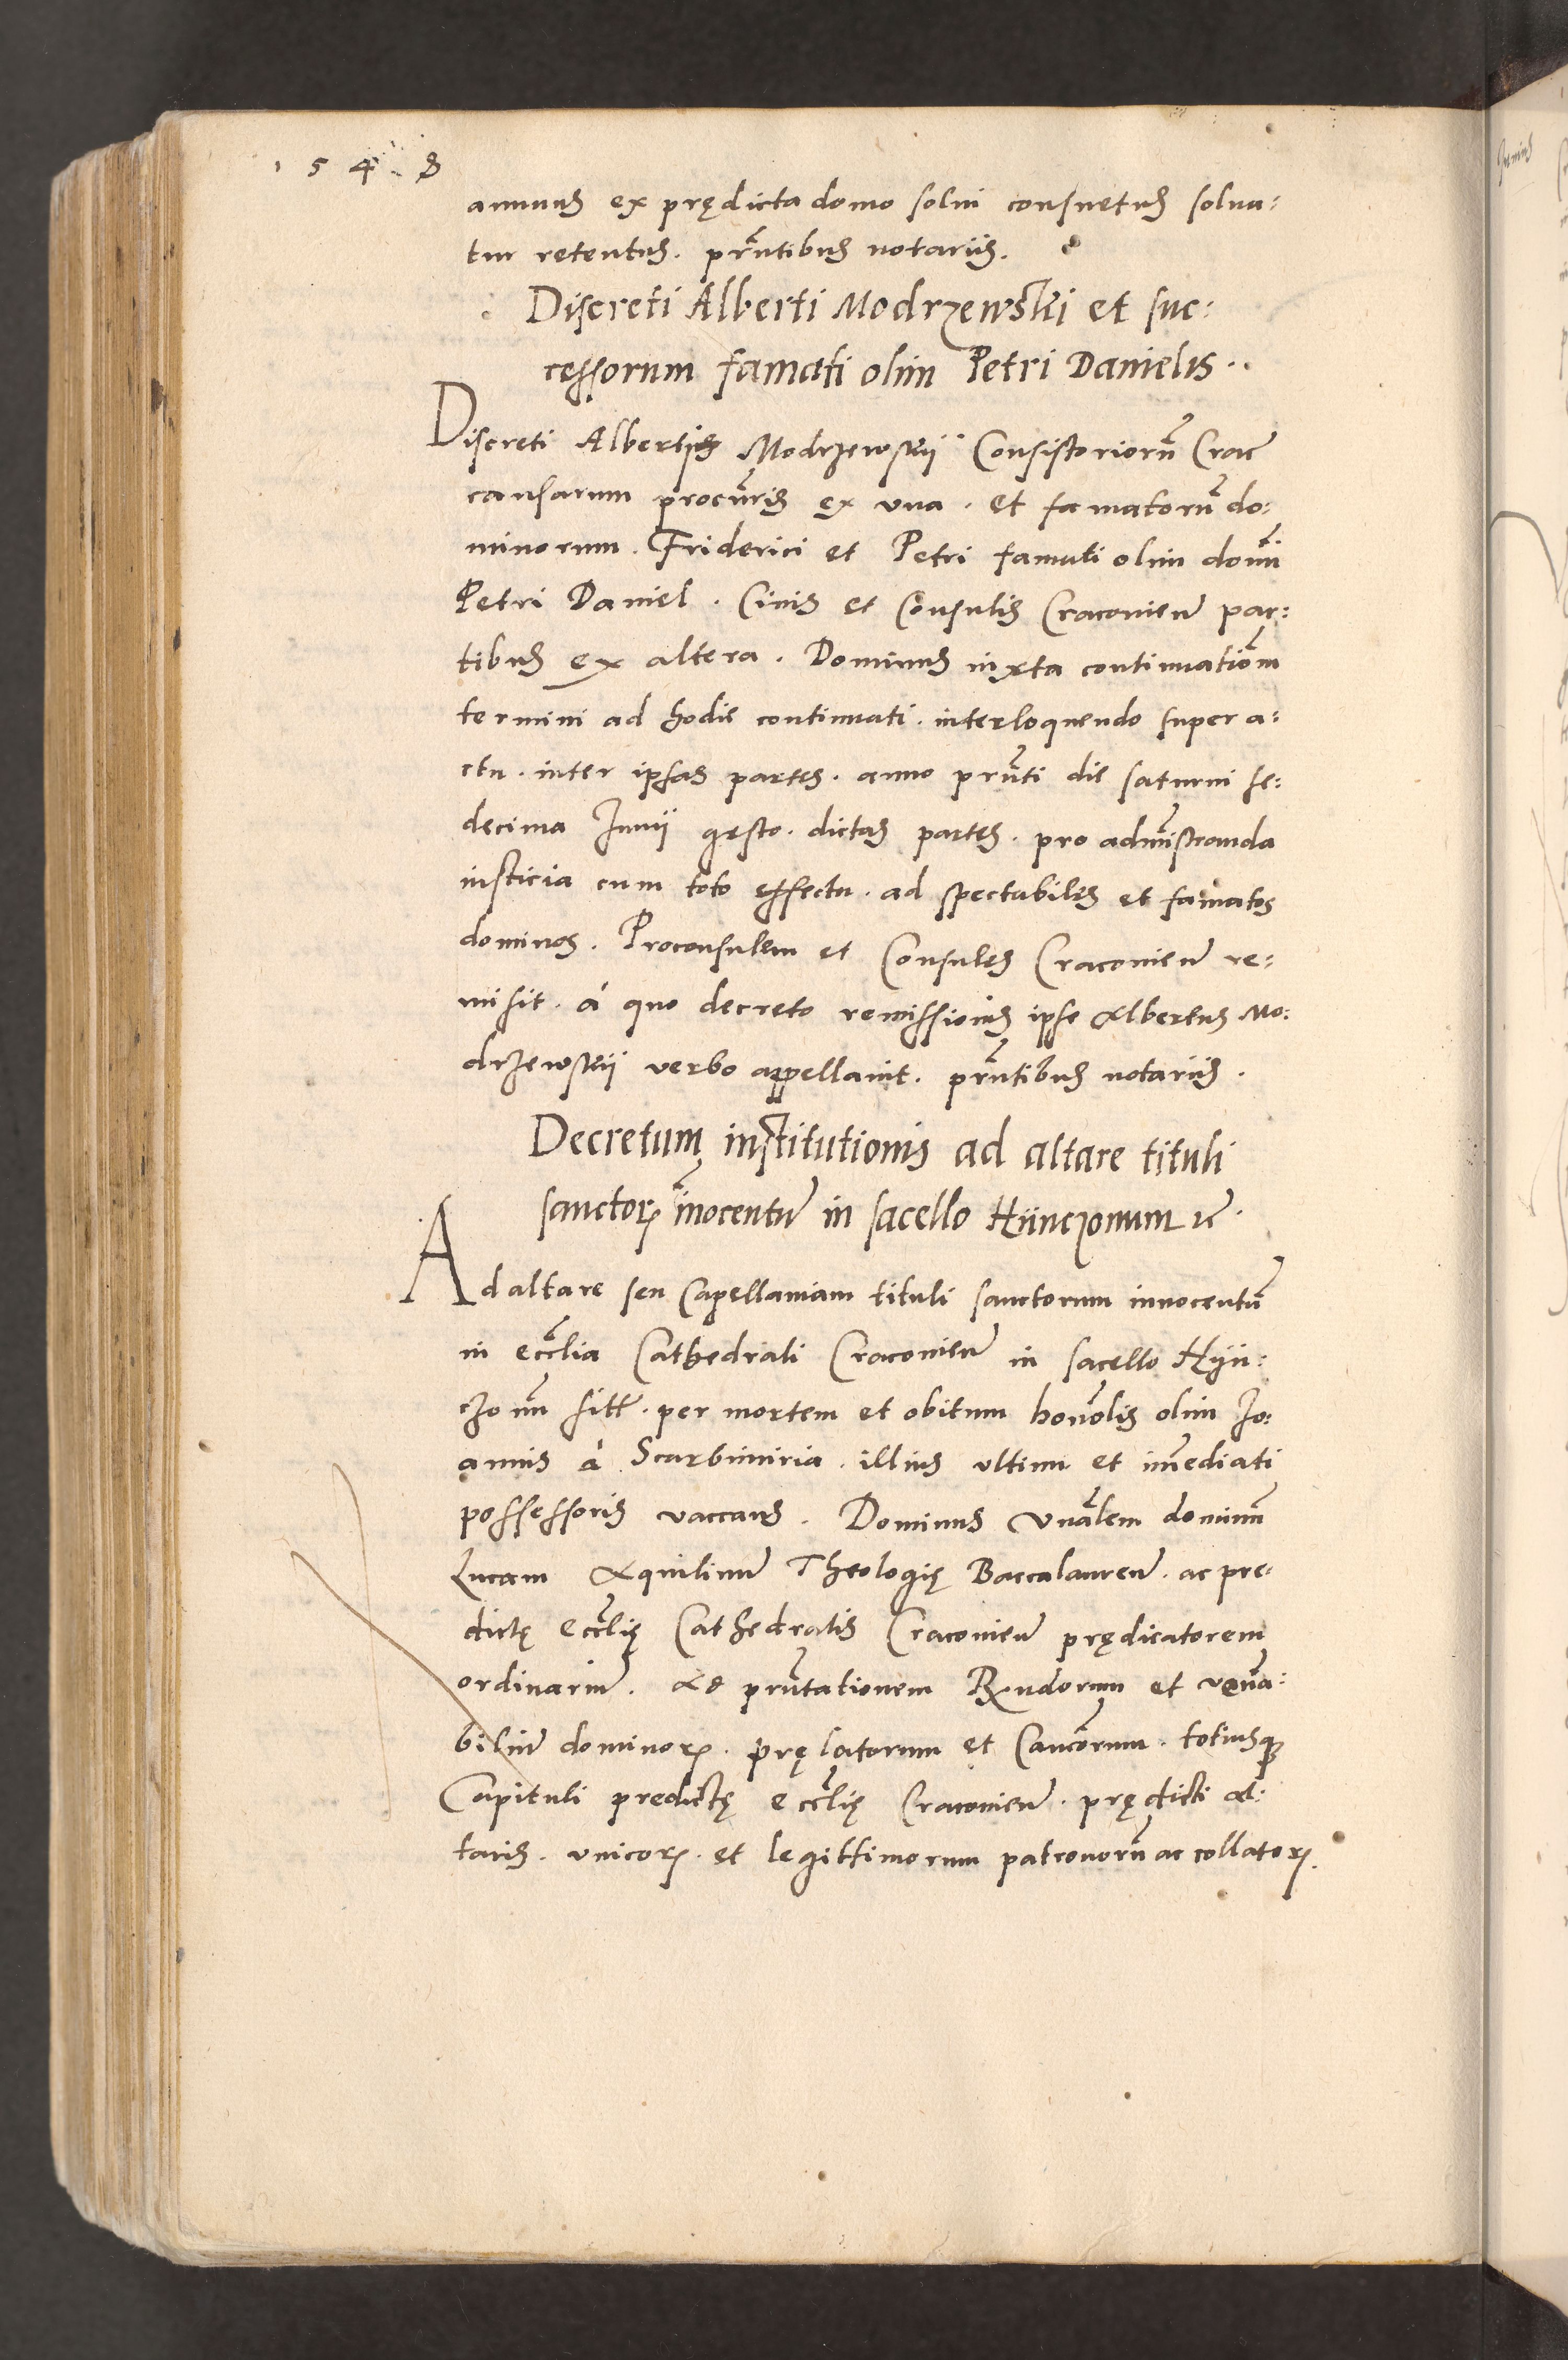 1548
annuus ex prędicta domo solui consuetus solua:
tur retentus. pñtibus notariis.
Discreti Alberti Modrzewskii et suc:
cessorum famati olim Petri Danielis.
Discreti Alberti Modrzewskii Consistoriorũ Crac̃
causarum procũris ex vna. et famatorũ do:
minorum. Friderici et Petri famati olim domĩ
Petri Daniel. Ciuis et Consulis Cracouien̄ par:
tibus ex altera. Dominus iuxta continuatiõm
termini ad hodie continuati. interloquendo super a:
ctu. inter ipsas partes. anno pñti die saturni se:
decima Junii gesto. dictas partes. pro admĩstranda
iusticia cum toto effectu. ad spectabiles et famatos
dominos. Proconsulem et Consules Cracouien̄ re:
misit. á quo decreto remissionis ipse Albertus Mo:
drzewskii verbo appellauit. pñtibus notariis.
Decretum institutionis ad altare tituli
sanctoꝝ ĩnocentū in sacello Hÿnczonum ꝛc̃.
Ad altare seu Capellaniam tituli sanctorum innocentū
in eccl̃ia Cathedrali Cracouien̄ in sacello Hÿn:
czonũ sitt̃. per mortem et obitum honol̃is olim Jo:
annis á Scarbimiria. illius vltimi et im̃ediati
possessoris vaccans. Dominus Vñalem dominũ
Lucam Aquilinū Theologię Baccalaureū. ac pre:
dictę Eccl̃ię Cathedralis Cracouien̄ prędicatorem
ordinariū. Ad pñtationem Rx̃ndorum et ven̄a:
biliū dominoꝝ. prę latorum et Cancõrum. totiusqꝫ
Capituli predictę eccl̃ię Cracouien̄. prędicti Al:
taris. vnicoꝝ. et legittimorum patronorũ ac collatoꝝ.